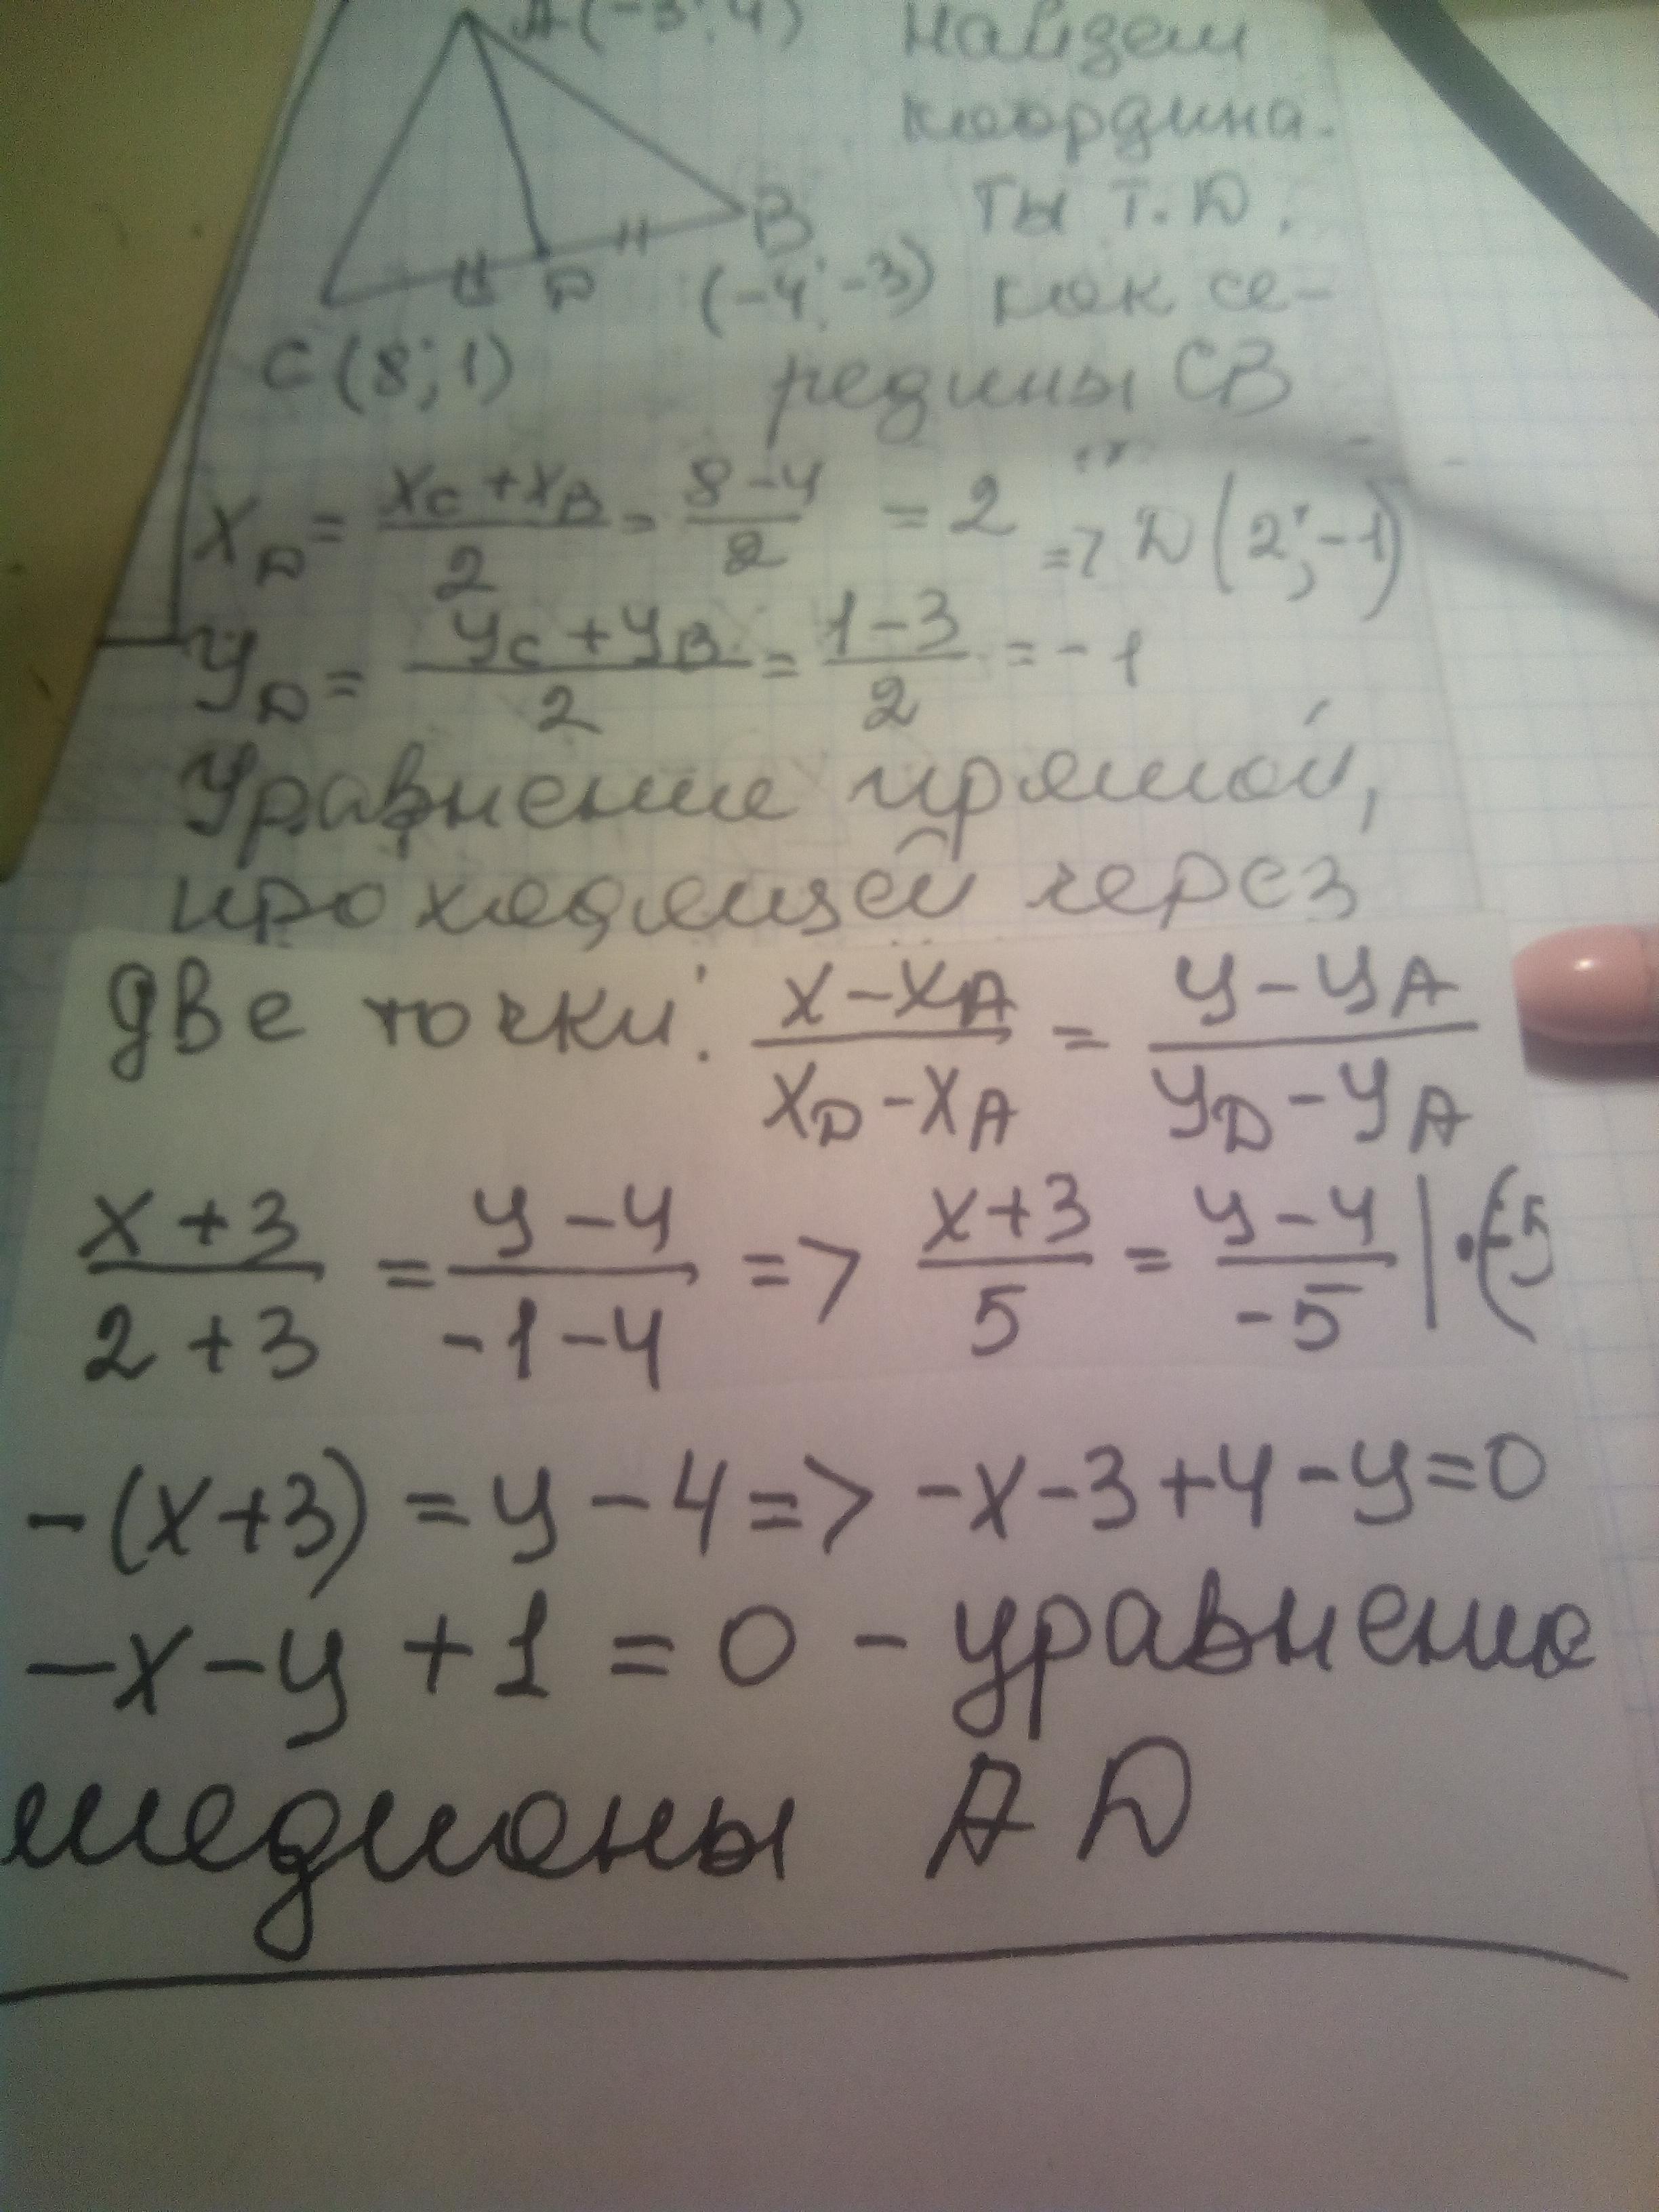 A(-3; 4) Найдем
координа-
B ты т. D.
D (-4; -3) как се-
C(8; 1) редины CB
X_D = (X_C + X_B)/2 = (8-4)/2 = 2 => D(2; -1)
У_D = (У_C + У_B)/2 = (1-3)/2 = -1
Уравнение прямой,
проходящей через
две точки: (X-X_A)/(X_D-X_A) = (У-У_A)/(У_D-У_A)
(X+3)/(2+3) = (У-4)/(-1-4) => (X+3)/5 = (У-4)/-5 | ·(-5
-(X+3) = У-4 => -X-3+4-У=0
-X-У+1=0 - уравнение
медианы AD